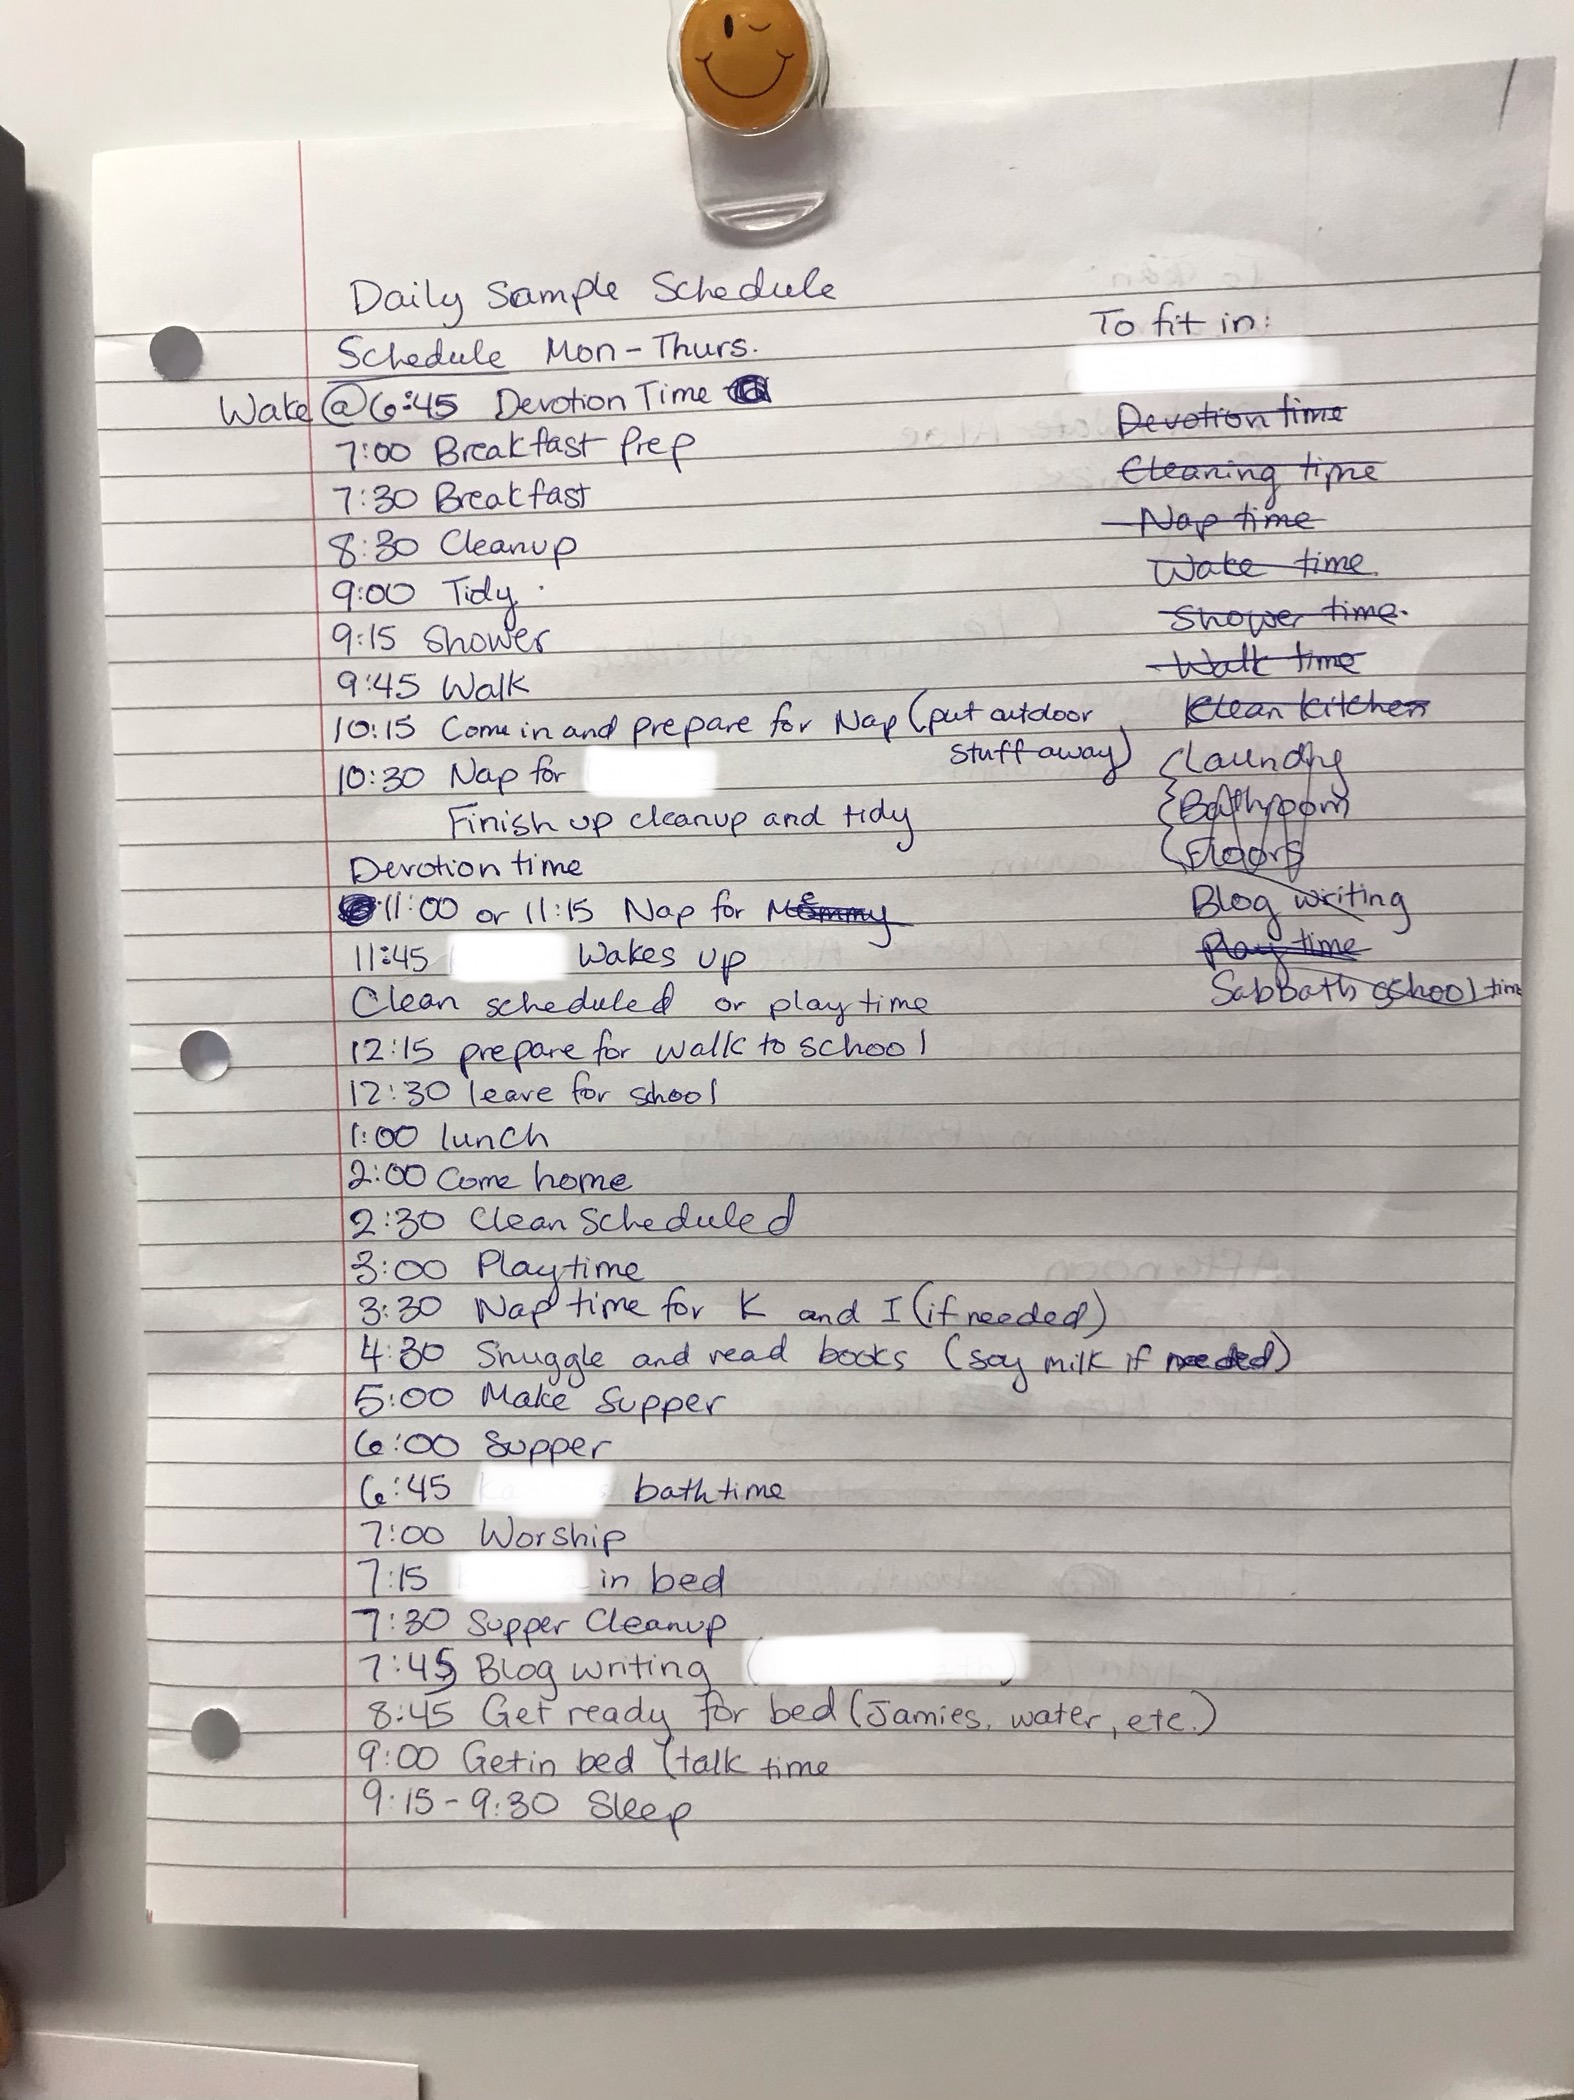 Daily Sample Schedule
Schedule Mon-Thurs.
Wake @ 6:45 Devotion Time
7:00 Breakfast Prep
7:30 Breakfast
8:30 Cleanup
9:00 Tidy
9:15 Shower
9:45 Walk
10:15 Come in and prepare for Nap (put outdoor
stuff away)
10:30 Nap for
Finish up cleanup and tidy
Devotion time
11:00 or 11:15 Nap for Mommy
11:45 Wakes up
Clean scheduled or playtime
12:15 prepare for walk to school
12:30 leave for school
1:00 lunch
2:00 Come home
2:30 Clean Scheduled
3:00 Playtime
3:30 Nap time for K and I (if needed)
4:30 Snuggle and read books (soy milk if needed)
5:00 Make Supper
6:00 Supper
6:45 bathtime
7:00 Worship
7:15 in bed
7:30 Supper Cleanup
7:45 Blog writing (
8:45 Get ready for bed (Jamies, water, etc.)
9:00 Get in bed (talk time
9:15-9:30 Sleep
To fit in:
Devotion time
Cleaning time
Nap time
Wake time
Shower time.
Walk time
Clean kitchen
Laundry
Bathroom
Floors
Blog writing
Play time
Sabbath school time